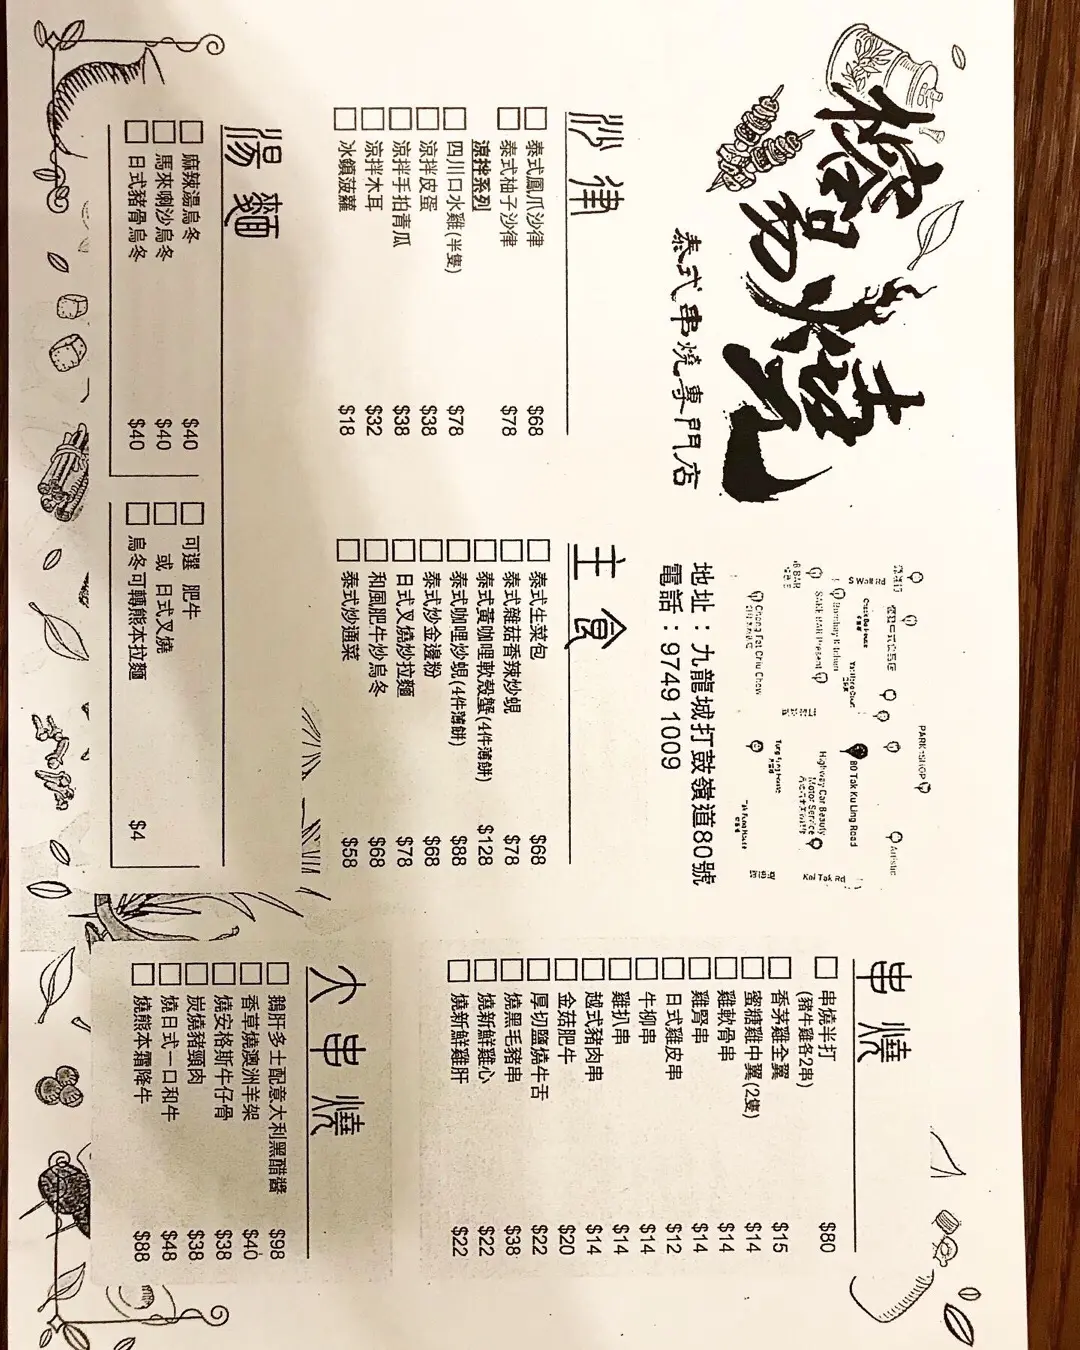 泰式串燒專門店
地址：九龍城打鼓嶺道80號
電話：9749 1009
S Wall Rd
Bombay Kitchen
Chong Fat Chiu Chow
PARKnSHOP
80 Tak Ku Ling Road
Highway Car Beauty
Motor Service
Artistic
Kai Tak Rd
沙律
泰式鳳爪沙律 $68
泰式柚子沙律 $78
涼拌系列
四川口水雞(半隻) $78
涼拌皮蛋 $38
涼拌手拍青瓜 $38
涼拌木耳 $32
冰鎮菠蘿 $18
主食
泰式生菜包 $68
泰式雜菇香辣炒蜆 $78
泰式黃咖哩軟殼蟹(4件薄餅) $128
泰式咖哩炒蜆(4件薄餅) $88
泰式炒金邊粉 $68
日式叉燒炒拉麵 $78
和風肥牛炒烏冬 $68
泰式炒通菜 $58
湯麵
麻辣湯烏冬 $40
馬來喇沙烏冬 $40
日式豬骨烏冬 $40
可選 肥牛
或 日式叉燒
烏冬可轉熊本拉麵 $4
串燒
串燒半打 $80
(豬牛雞各2串)
香茅雞全翼 $15
蜜糖雞中翼(2隻) $14
雞軟骨串 $14
雞腎串 $14
日式雞皮串 $12
牛柳串 $14
雞扒串 $14
越式豬肉串 $14
金菇肥牛 $20
厚切鹽燒牛舌 $22
燒黑毛豬串 $38
燒新鮮雞心 $22
燒新鮮雞肝 $22
大串燒
鵝肝多士配意大利黑醋醬 $98
香草燒澳洲羊架 $40
燒安格斯牛仔骨 $38
炭燒豬頸肉 $38
燒日式一口和牛 $48
燒熊本霜降牛 $88